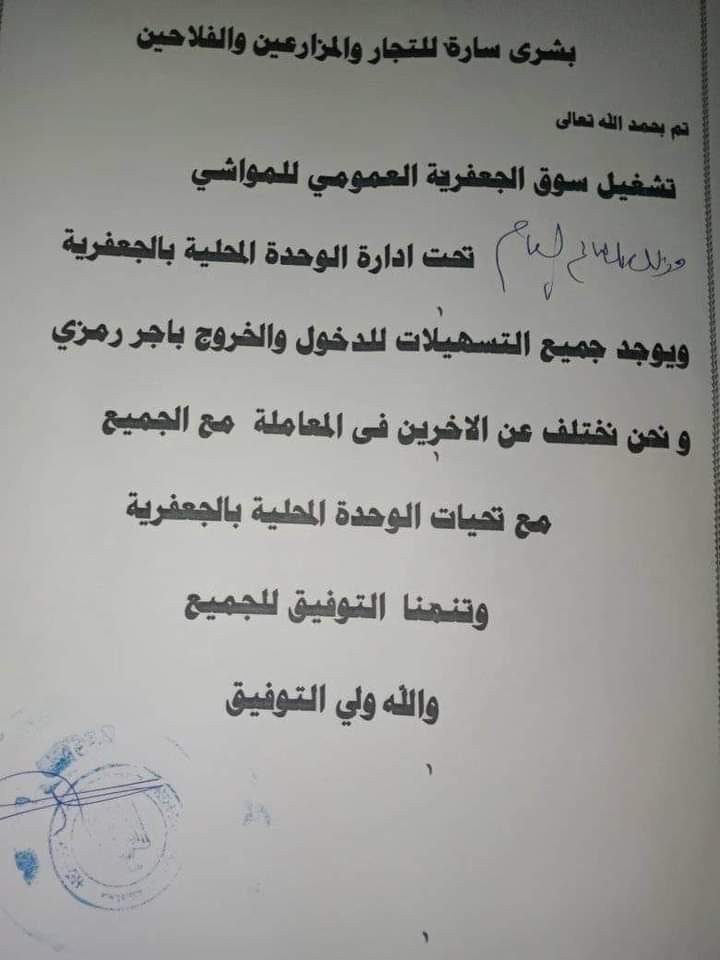 بشرى سارة للتجار والمزارعين والفلاحين
تم بحمد الله تعالى
تشغيل سوق الجعفرية العمومي للمواشي
وذلك العام تحت ادارة الوحدة المحلية بالجعفرية
ويوجد جميع التسهيلات للدخول والخروج باجر رمزي
و نحن نختلف عن الاخرين فى المعاملة مع الجميع
مع تحيات الوحدة المحلية بالجعفرية
وتنمنا التوفيق للجميع
والله ولي التوفيق